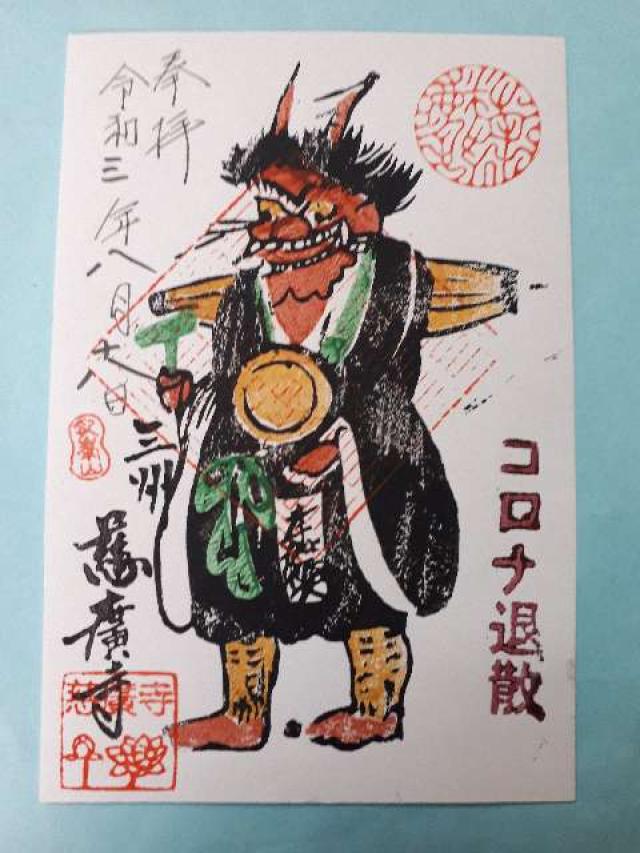 コロナ退散
奉拝
令和三年八月十八日
三州
慈廣寺
慈廣寺